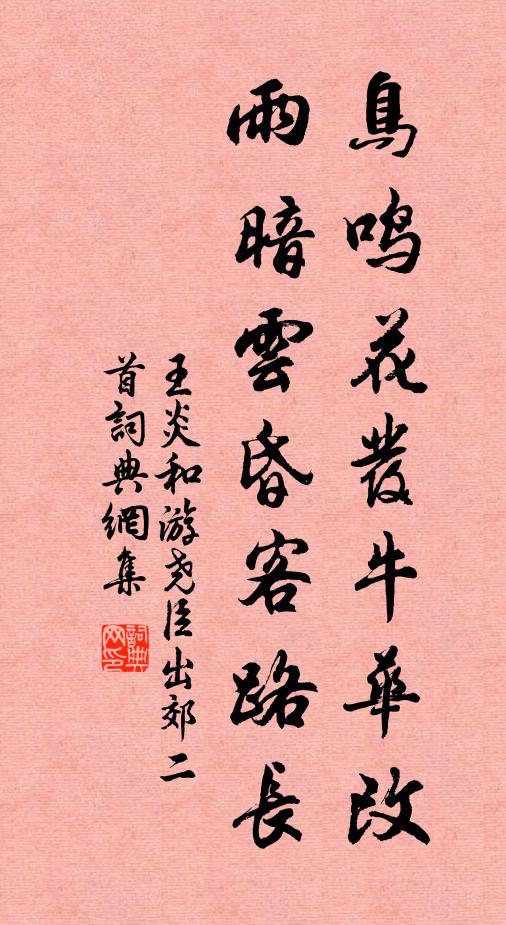 鳥鳴花發牛華改
雨暗雲昏客路長
王炎和游堯臣出郊二
首詞典網集
詞典网印